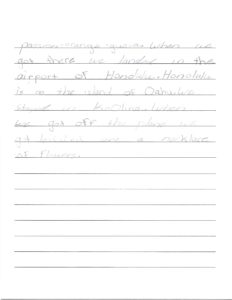 passion-orange-guava. When we
got there we landed in the
airport of Honolulu. Honolulu
is on the island of Oahu. We
stayed in. When
we got off the plane we
got a necklace
of flowers.